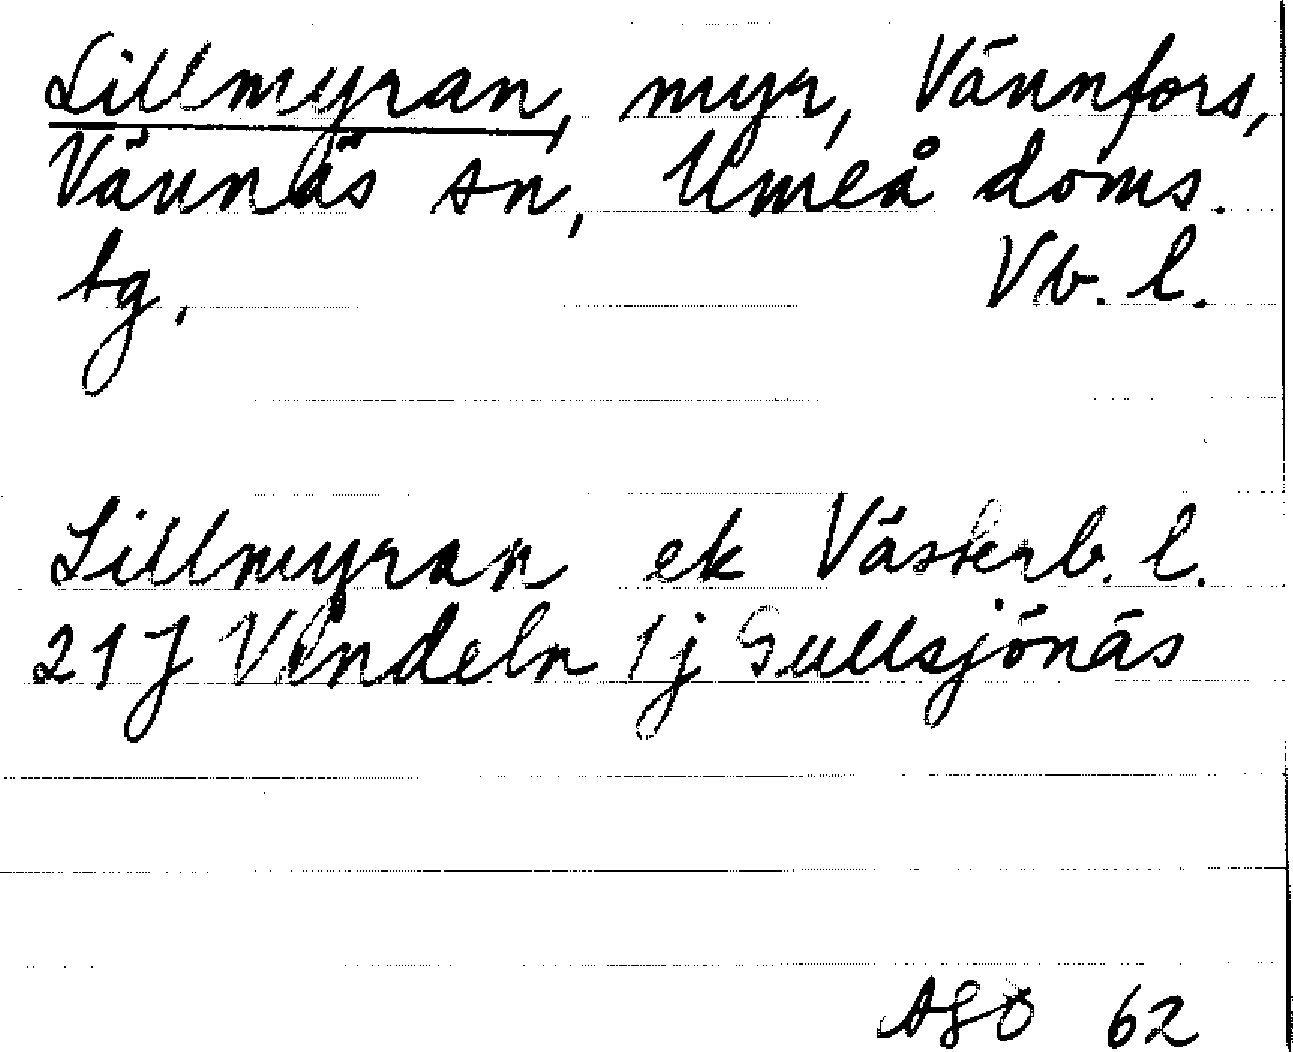 Lillmyran, myr, Vännfors,
Vännäs sn, Umeå doms.
tg, Vb. l.
Lillmyran ek Västerb. l.
21J Vindeln 1j Gullsjönäs
62